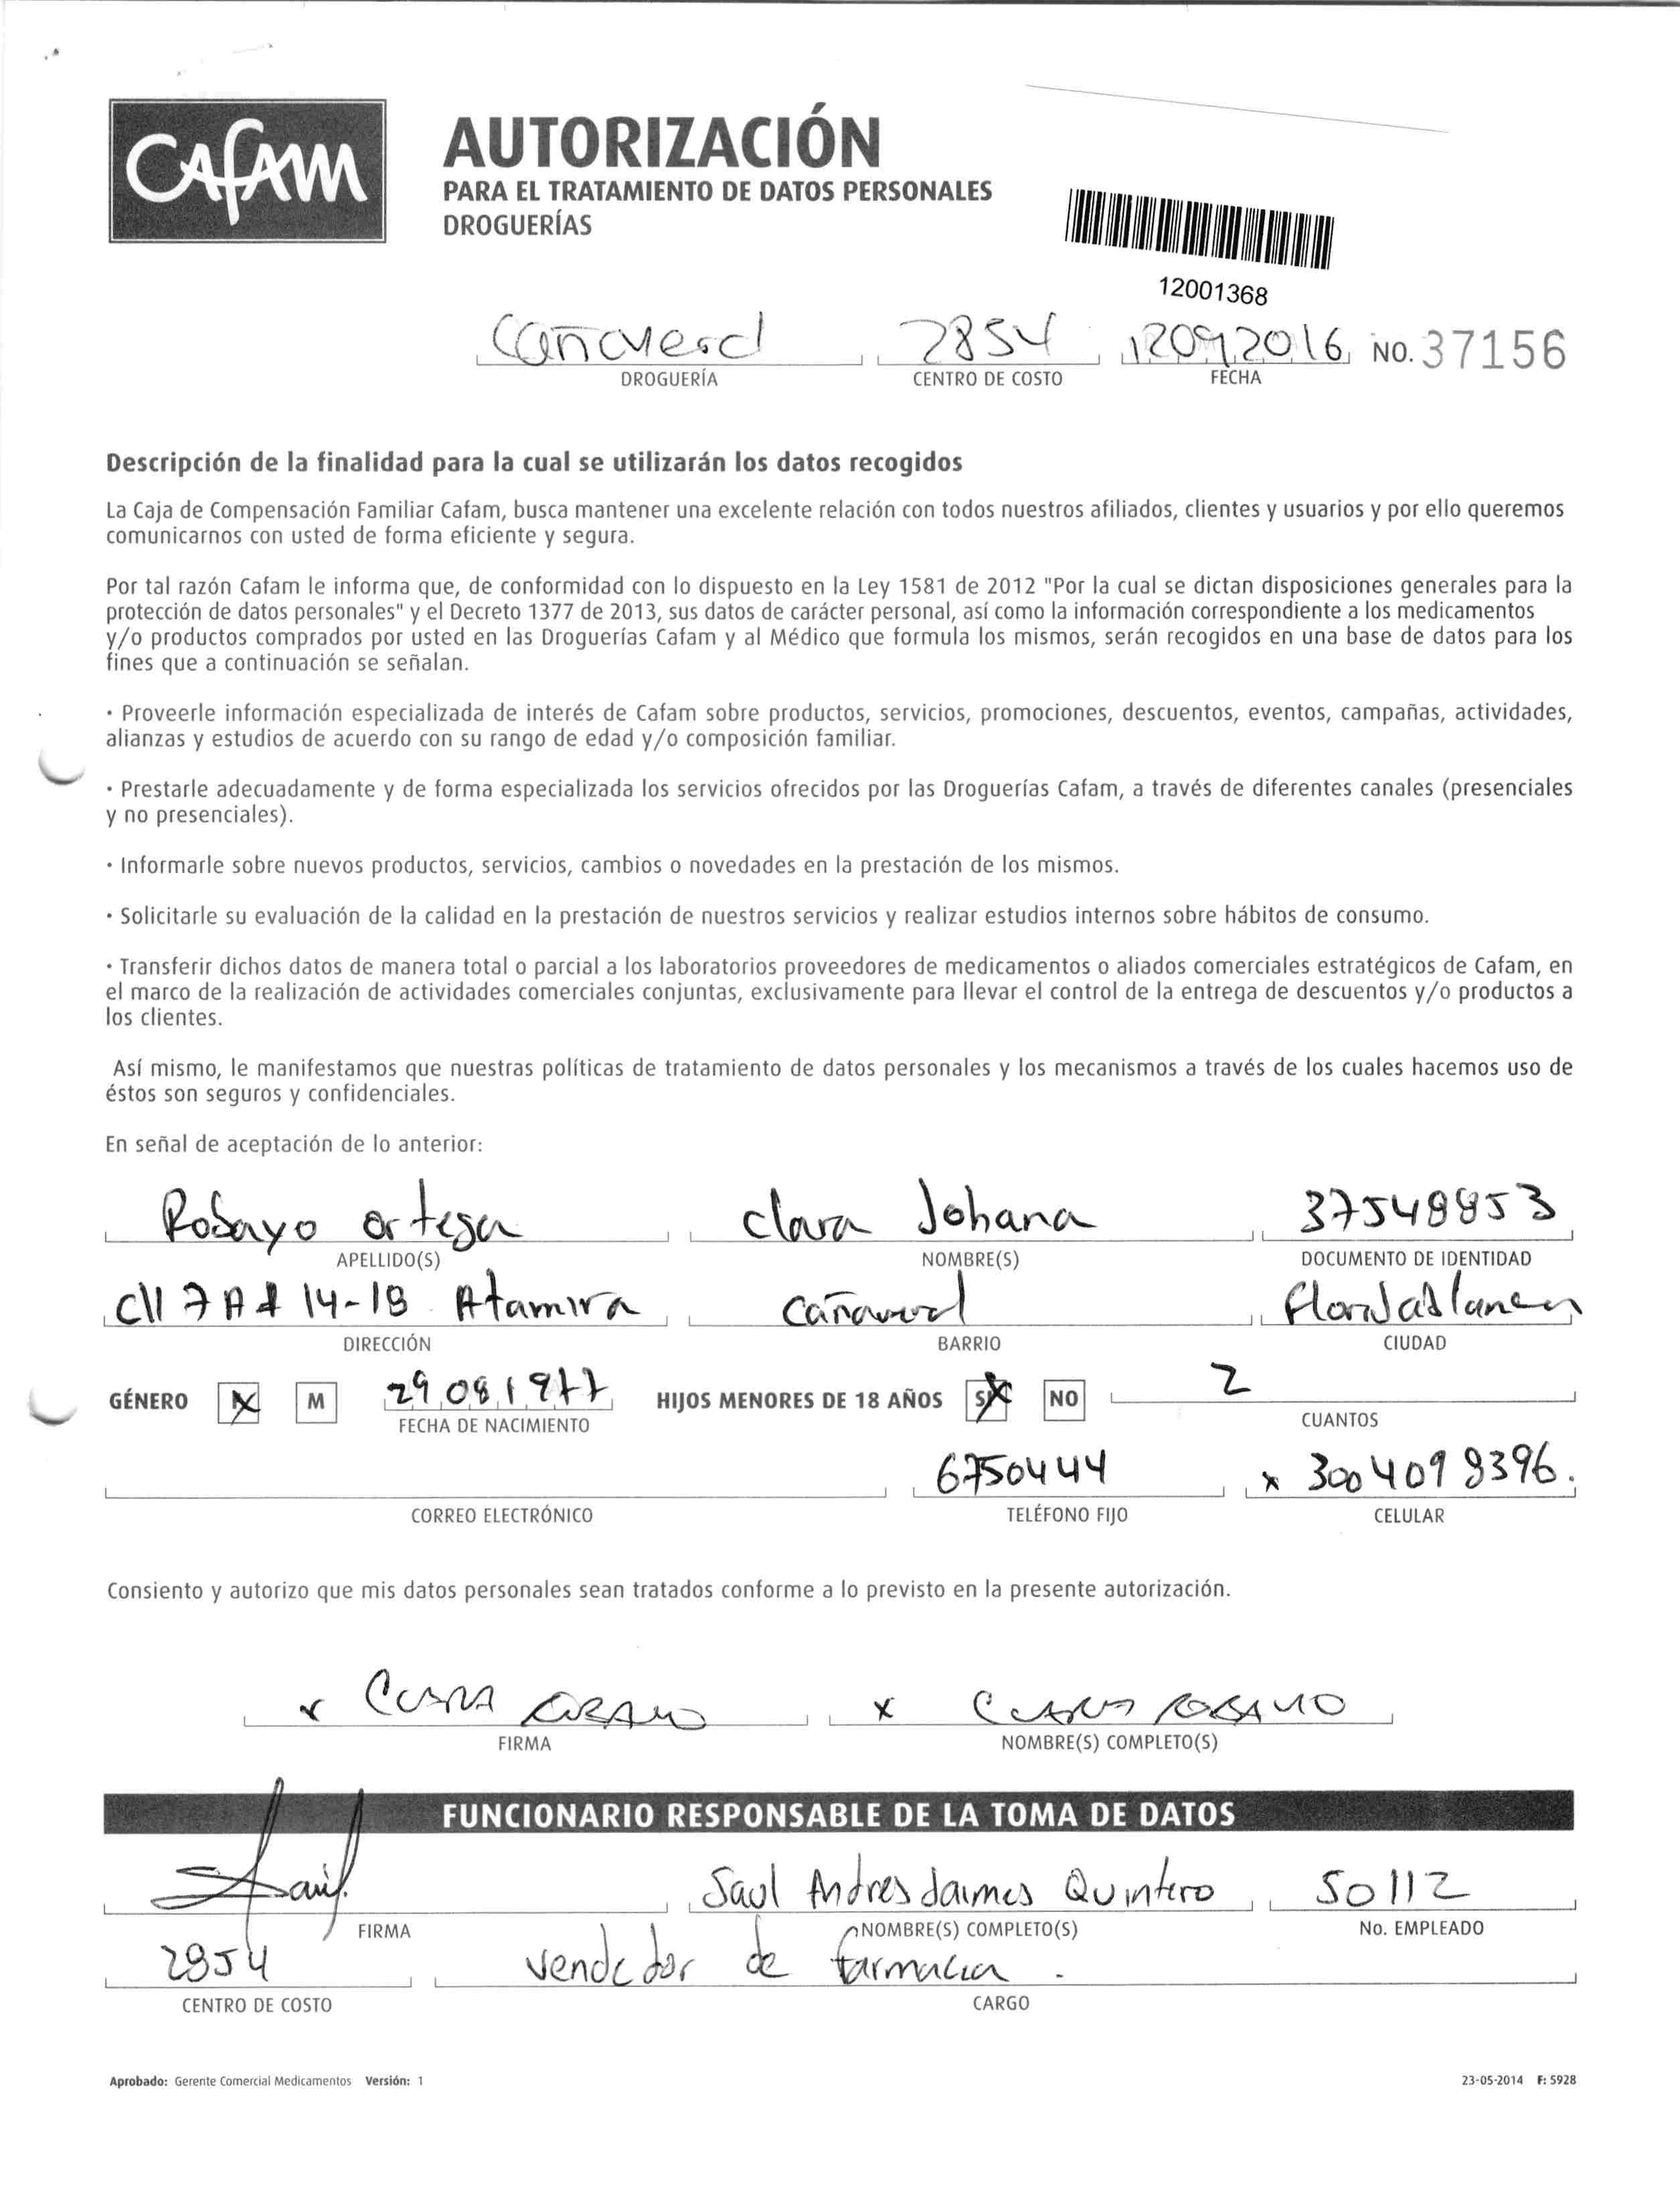 CAFAM
AUTORIZACIÓN
PARA EL TRATAMIENTO DE DATOS PERSONALES
DROGUERÍAS
12001368
Cañaveral 2854 12092016 NO. 37156
DROGUERÍA CENTRO DE COSTO FECHA
Descripción de la finalidad para la cual se utilizarán los datos recogidos
La Caja de Compensación Familiar Cafam, busca mantener una excelente relación con todos nuestros afiliados, clientes y usuarios y por ello queremos
comunicarnos con usted de forma eficiente y segura.
Por tal razón Cafam le informa que, de conformidad con lo dispuesto en la Ley 1581 de 2012 "Por la cual se dictan disposiciones generales para la
protección de datos personales" y el Decreto 1377 de 2013, sus datos de carácter personal, así como la información correspondiente a los medicamentos
y/o productos comprados por usted en las Droguerías Cafam y al Médico que formula los mismos, serán recogidos en una base de datos para los
fines que a continuación se señalan.
· Proveerle información especializada de interés de Cafam sobre productos, servicios, promociones, descuentos, eventos, campañas, actividades,
alianzas y estudios de acuerdo con su rango de edad y/o composición familiar.
· Prestarle adecuadamente y de forma especializada los servicios ofrecidos por las Droguerías Cafam, a través de diferentes canales (presenciales
y no presenciales).
· Informarle sobre nuevos productos, servicios, cambios o novedades en la prestación de los mismos.
· Solicitarle su evaluación de la calidad en la prestación de nuestros servicios y realizar estudios internos sobre hábitos de consumo.
· Transferir dichos datos de manera total o parcial a los laboratorios proveedores de medicamentos o aliados comerciales estratégicos de Cafam, en
el marco de la realización de actividades comerciales conjuntas, exclusivamente para llevar el control de la entrega de descuentos y/o productos a
los clientes.
Así mismo, le manifestamos que nuestras políticas de tratamiento de datos personales y los mecanismos a través de los cuales hacemos uso de
éstos son seguros y confidenciales.
En señal de aceptación de lo anterior:
Robayo ortega clara Johana 37548853
APELLIDO(S) NOMBRE(S) DOCUMENTO DE IDENTIDAD
Cll 7A # 14-18 Atamira Cañaveral Floridablanca
DIRECCIÓN BARRIO CIUDAD
GÉNERO X M 29081977 HIJOS MENORES DE 18 AÑOS SI NO 2
FECHA DE NACIMIENTO CUANTOS
6750444 x 3004098396.
CORREO ELECTRÓNICO TELÉFONO FIJO CELULAR
Consiento y autorizo que mis datos personales sean tratados conforme a lo previsto en la presente autorización.
x CLARA ROBAYO x CLARA ROBAYO
FIRMA NOMBRE(S) COMPLETO(S)
FUNCIONARIO RESPONSABLE DE LA TOMA DE DATOS
Saul Andres Jaimes Quintero 50112
FIRMA NOMBRE(S) COMPLETO(S) No. EMPLEADO
2854 vendedor de farmacia.
CENTRO DE COSTO CARGO
Aprobado: Gerente Comercial Medicamentos Versión: 1 23-05-2014 F: 5928